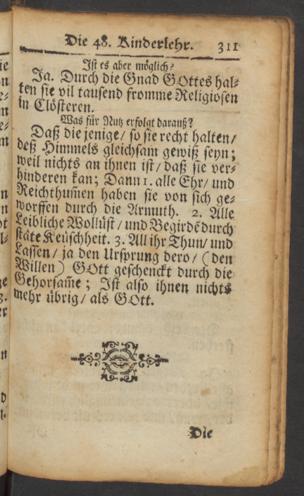 Die 48. Kinderlehr. 311
Ist es aber möglich?
Ja. Durch die Gnad GOttes hal-
ten sie vil tausend fromme Religiosen
in Clösteren.
Was für Nutz erfolgt darauß?
Daß die jenige/ so sie recht halten/
deß Himmels gleichsam gewiß seyn;
weil nichts an ihnen ist/ daß sie ver-
hinderen kan; Dann 1. alle Ehr/ und
Reichthum̄en haben sie von sich ge-
worffen durch die Armuth. 2. Alle
Leibliche Wollüst/ und Begirdē durch
stäte Keuschheit. 3. All ihr Thun/ und
Lassen/ ja den Ursprung dero/ (den
Willen) GOtt geschenckt durch die
Gehorsam̄e; Ist also ihnen nichts
mehr übrig/ als GOtt.
Die